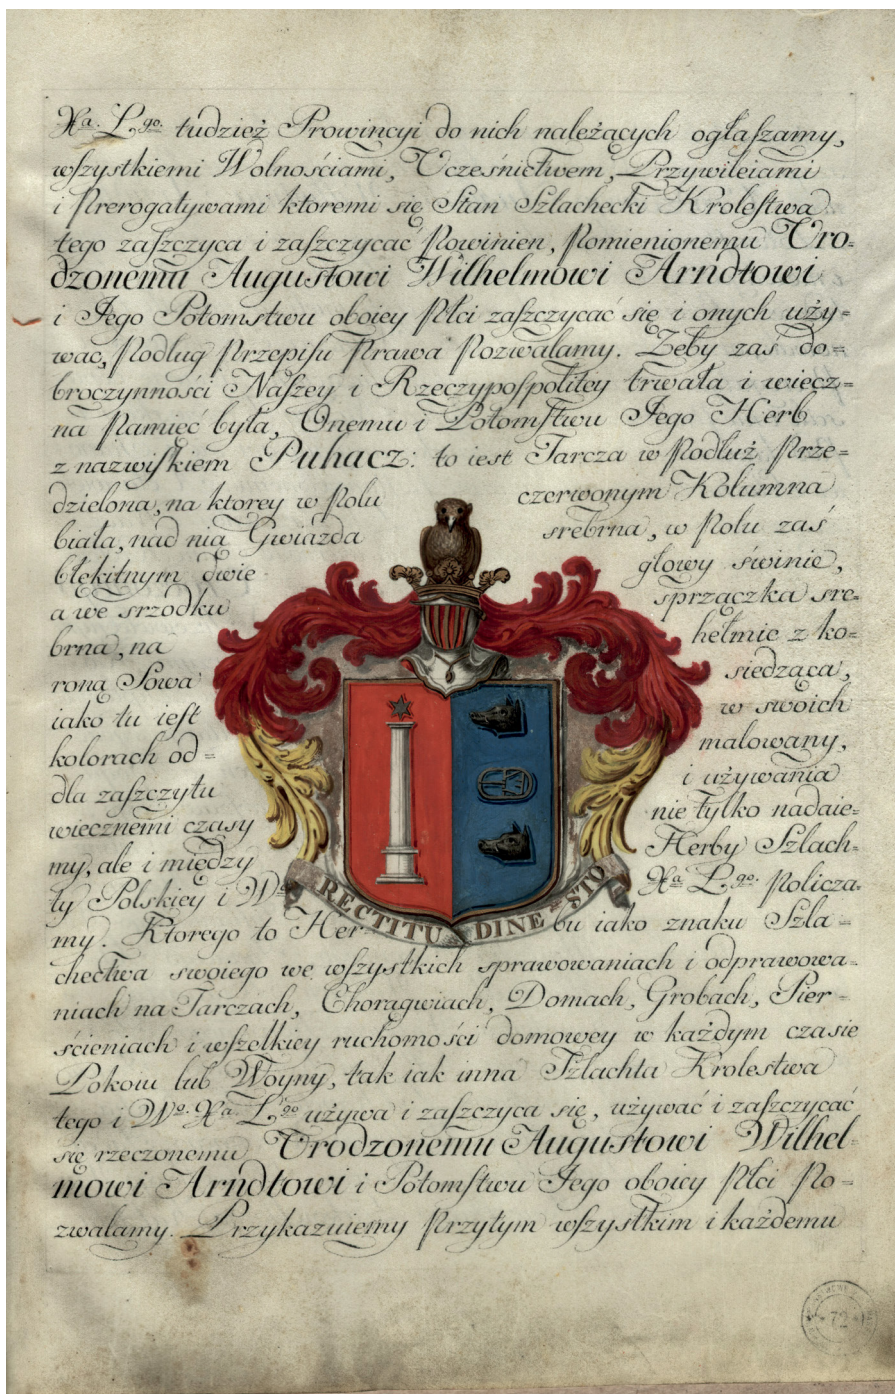 Xa. Lgo. tudzież Prowincyi do nich należących ogłaszamy,
wſzystkiemi Wolnościami, Uczeſnictwem, Przywileiami
i Prerogatywami ktoremi się Stan Szlachecki Kroleſtwa
tego zaſzczyca i zaſzczycać Powinien, Pomienionemu Uro-
dzonemu Augustowi Wilhelmowi Arndtowi
i Jego Potomstwu oboiey Płci zaſzczycać się i onych uży-
wać, Podług Przepiſu Prawa Pozwalamy. Żeby zaś do-
broczynności Naſzey i Rzeczypoſpolitey trwała i wiecz-
na Pamięć była, Onemu i Potomſtwu Jego Herb
z nazwiſkiem Puhacz: to iest Tarcza w Podłuż Prze-
dzielona, na ktorey w Polu czerwonym Kolumna
biała, nad nią Gwiazda srebrna, w Polu zaś
błękitnym dwie głowy świnie,
a we srzodku sprzączka sre-
brna, na hełmie z ko-
roną Sowa siedząca,
iako tu ieſt w swoich
kolorach od- malowany,
dla zaſzczytu i używania
wiecznemi czasy nie tylko nadaie-
my, ale i między Herby Szlach-
ty Polskiey i Wo Xa Lgo. Policza-
my. Ktorego to Her bu iako znaku Szla-
RECTITUDINE STO
chectwa swoiego we wſzystkich sprawowaniach i odprawowa-
niach na Tarczach, Chorągwiach, Domach, Grobach, Pier-
ścieniach i wſzelkiey ruchomości domowey w każdym czasie
Pokoiu lub Woyny, tak iak inna Szlachta Krolestwa
tego i Wo. Xa. Lgo używa i zaſzczyca się, używać i zaſzczycać
się rzeczonemu Urodzonemu Augustowi Wilhel-
mowi Arndtowi i Potomſtwu Jego oboiey Płci Po-
zwalamy. Przykazuiemy Przytym wſzystkim i każdemu
72